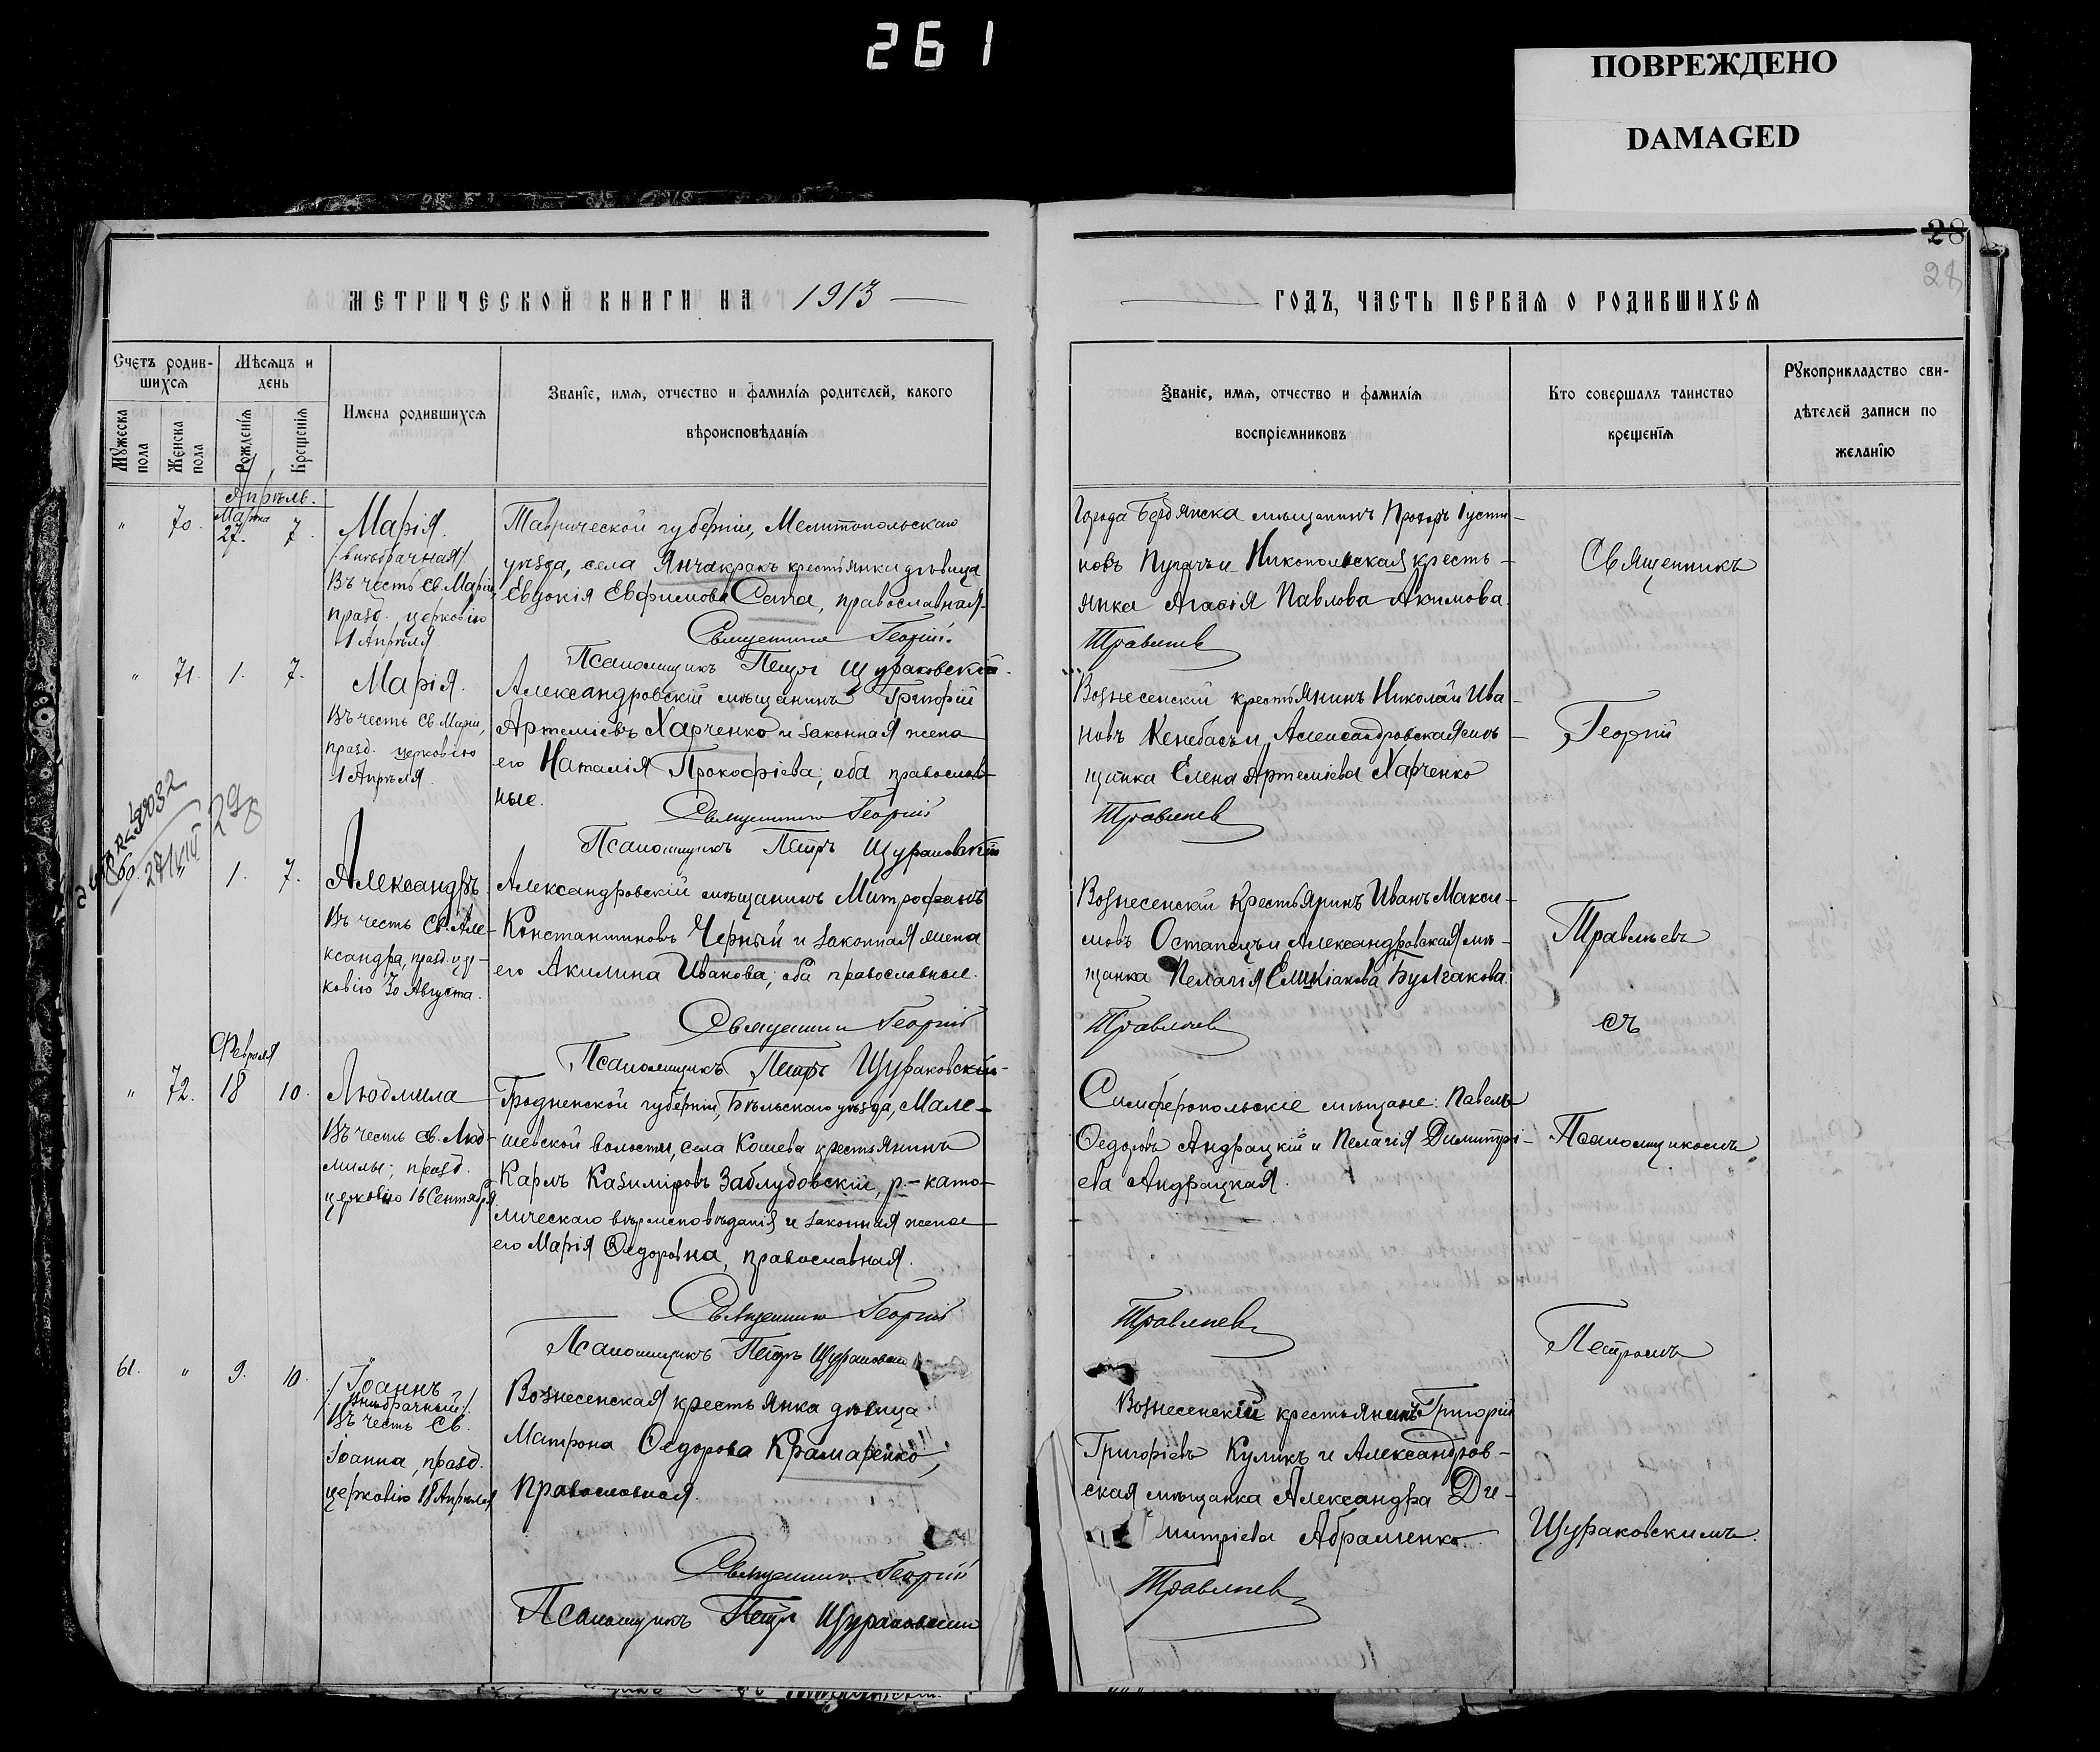 261
ПОВРЕЖДЕНО
DAMAGED
28
28
МЕТРИЧЕСКОЙ КНИГИ НА 1913
ГОДЪ, ЧАСТЬ ПЕРВАЯ О РОДИВШИХСЯ
Счетъ родив-
шихся
Мужеска пола
Женска пола
Мѣсяцъ и
день
Рожденія
Крещенія
Имена родившихся
Званіе, имя, отчество и фамилія родителей, какого
вѣроисповѣданія
Званіе, имя, отчество и фамилія
воспріемниковъ
Кто совершалъ таинство
крещенія
Рукоприкладство сви-
дѣтелей записи по
желанію
Апрѣль.
" 70. Марта 27. 7.
Марія.
/внѣбрачная/
Въ честь Св. Маріи,
празд. церковію
1 Апрѣля
Таврической губерніи, Мелитопольскаго
уѣзда, села Янчакракъ крестьянки дѣвица
Евдокія Евфимова Сапа, православная.
Священникъ Георгій
Псаломщикъ Петръ Щураковскій.
Города Бердянска мѣщанинъ
новъ Пугачъ и Никопольская кресть-
янка Агафія Павлова Акимова.
Травлѣевъ
" 71. 1. 7.
Марія.
Въ честь Св. Маріи,
празд. церковію
1 Апрѣля.
Александровскій мѣщанинъ Григорій
Артеміевъ Харченко и законная жена
его Наталія Прокофіева; оба православ-
ные.
Священникъ Георгій
Псаломщикъ Петръ Щураковскій
Вознесенскій крестьянинъ Николай Ива-
новъ Кенебасъ и Александровская мѣ-
щанка Елена Артеміева Харченко
Травлѣевъ
298
60. 1. 7.
Александръ
Въ честь Св. Але-
ксандра, празд. цер-
ковію 30 Августа.
Александровскій мѣщанинъ Митрофанъ
Константиновъ Черный и законная жена
его Акилина Иванова; оба православные.
Священникъ Георгій
Псаломщикъ Петръ Щураковскій
Вознесенскій крестьянинъ Иванъ Макси-
мовъ Остапецъ и Александровская мѣ-
щанка Пелагія Булгакова.
Травлѣевъ
Февраля
" 72. 18 10.
Людмила
Въ честь Св. Люд-
милы; празд.
церковію 16 Сентября
Гродненской губерніи, Бѣльскаго уѣзда, Мале-
шевской волости, села Кошева крестьянинъ
Карлъ Казиміровъ Заблудовскій, р.-като-
лическаго вѣроисповѣданія и законная жена
его Марія Ѳедоровна, православная.
Священникъ Георгій
Псаломщикъ Петръ Щураковскій
Симферопольскіе мѣщане: Павелъ
Ѳедоровъ Андрацкій и Пелагія Димитрі-
ева Андрацкая.
Травлѣевъ
61. " 9. 10.
Іоаннъ
/Внѣбрачный/
Въ честь Св.
Іоанна, празд.
церковію 18 Апрѣля
Вознесенская крестьянка дѣвица
Матрона Ѳедорова Крамаренко,
православная.
Священникъ Георгій
Псаломщикъ Петръ Щураковскій
Вознесенскій крестьянинъ Григорій
Григоріевъ Куликъ и Александров-
ская мѣщанка Александра Ди-
митріева Абраменко.
Травлѣевъ
Священникъ
Георгій
Травлѣевъ
съ
Псаломщикомъ
Петромъ
Щураковскимъ.